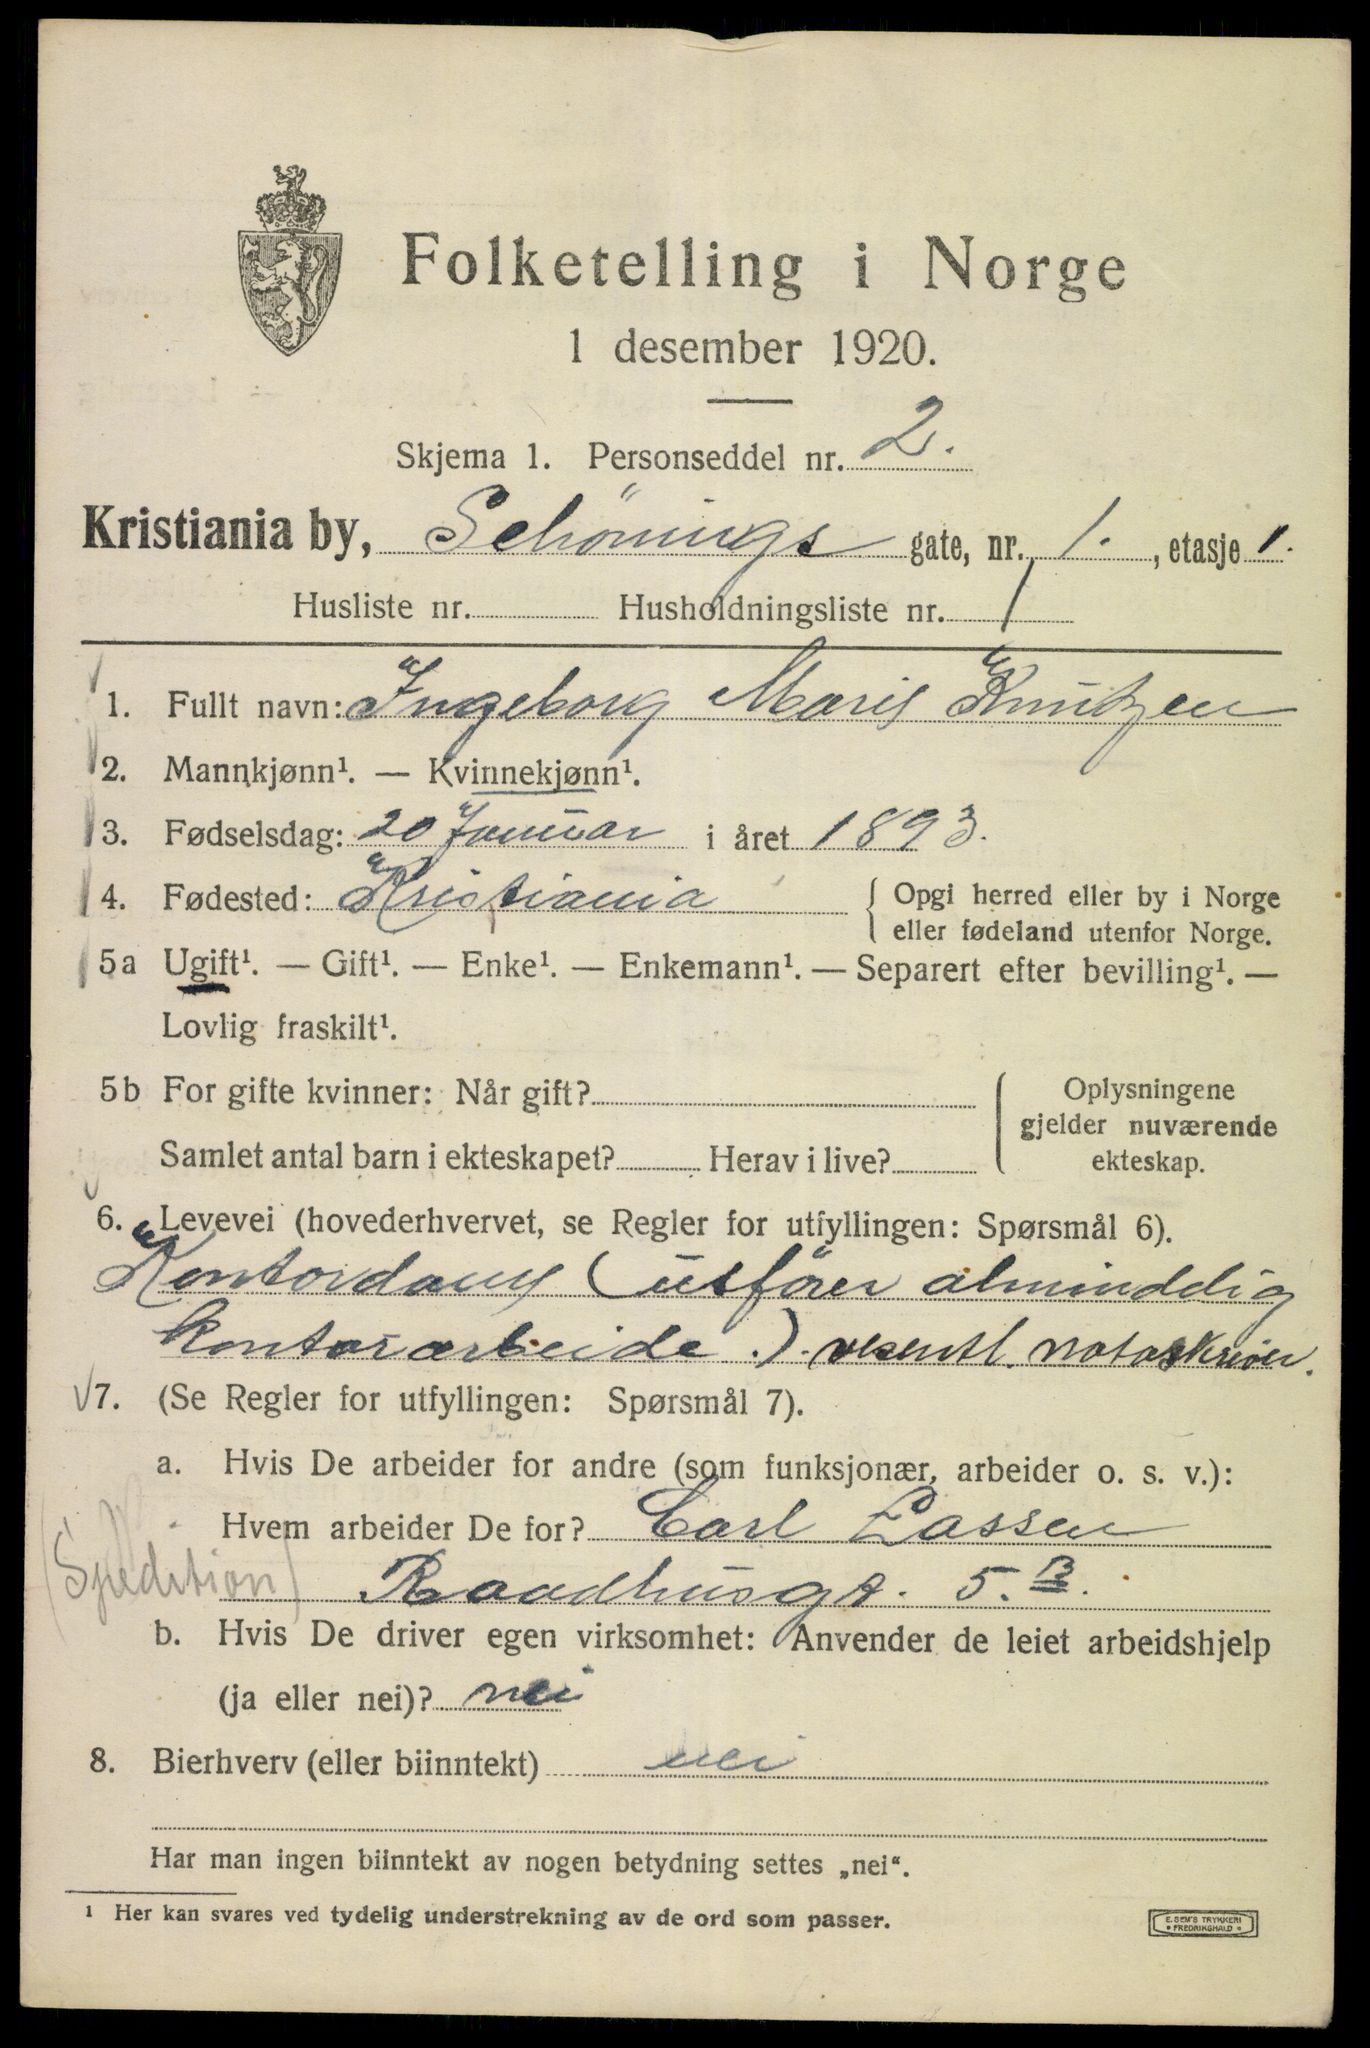 Folketelling i Norge
1 desember 1920.
Skjema 1. Personseddel nr. 2.
Kristiania by, Schönings gate, nr. 1., etasje 1.
Husliste nr. Husholdningsliste nr. 1
1. Fullt navn: Ingeborg Marie Knutzen
2. Mannkjønn¹. — Kvinnekjønn¹.
3. Fødselsdag: 20 Januar i året 1893.
4. Fødested: Kristiania { Opgi herred eller by i Norge
eller fødeland utenfor Norge.
5a Ugift¹. — Gift¹. — Enke¹. — Enkemann¹. — Separert efter bevilling¹. —
Lovlig fraskilt¹.
5b For gifte kvinner: Når gift? { Oplysningene
gjelder nuværende
Samlet antal barn i ekteskapet? Herav i live? ekteskap.
6. Levevei (hovederhvervet, se Regler for utfyllingen: Spørsmål 6).
Kontordame (utfører almindelig
kontorarbeide.). vesentl. notaskriver.
7. (Se Regler for utfyllingen: Spørsmål 7).
a. Hvis De arbeider for andre (som funksjonær, arbeider o. s. v.):
Hvem arbeider De for? Carl Lassen
(Spedition) Raadhusgt. 5.B.
b. Hvis De driver egen virksomhet: Anvender de leiet arbeidshjelp
(ja eller nei)? nei
8. Bierhverv (eller biinntekt) nei
Har man ingen biinntekt av nogen betydning settes „nei“.
¹ Her kan svares ved tydelig understrekning av de ord som passer.
E. SEM'S TRYKKERI
FREDRIKSHALD